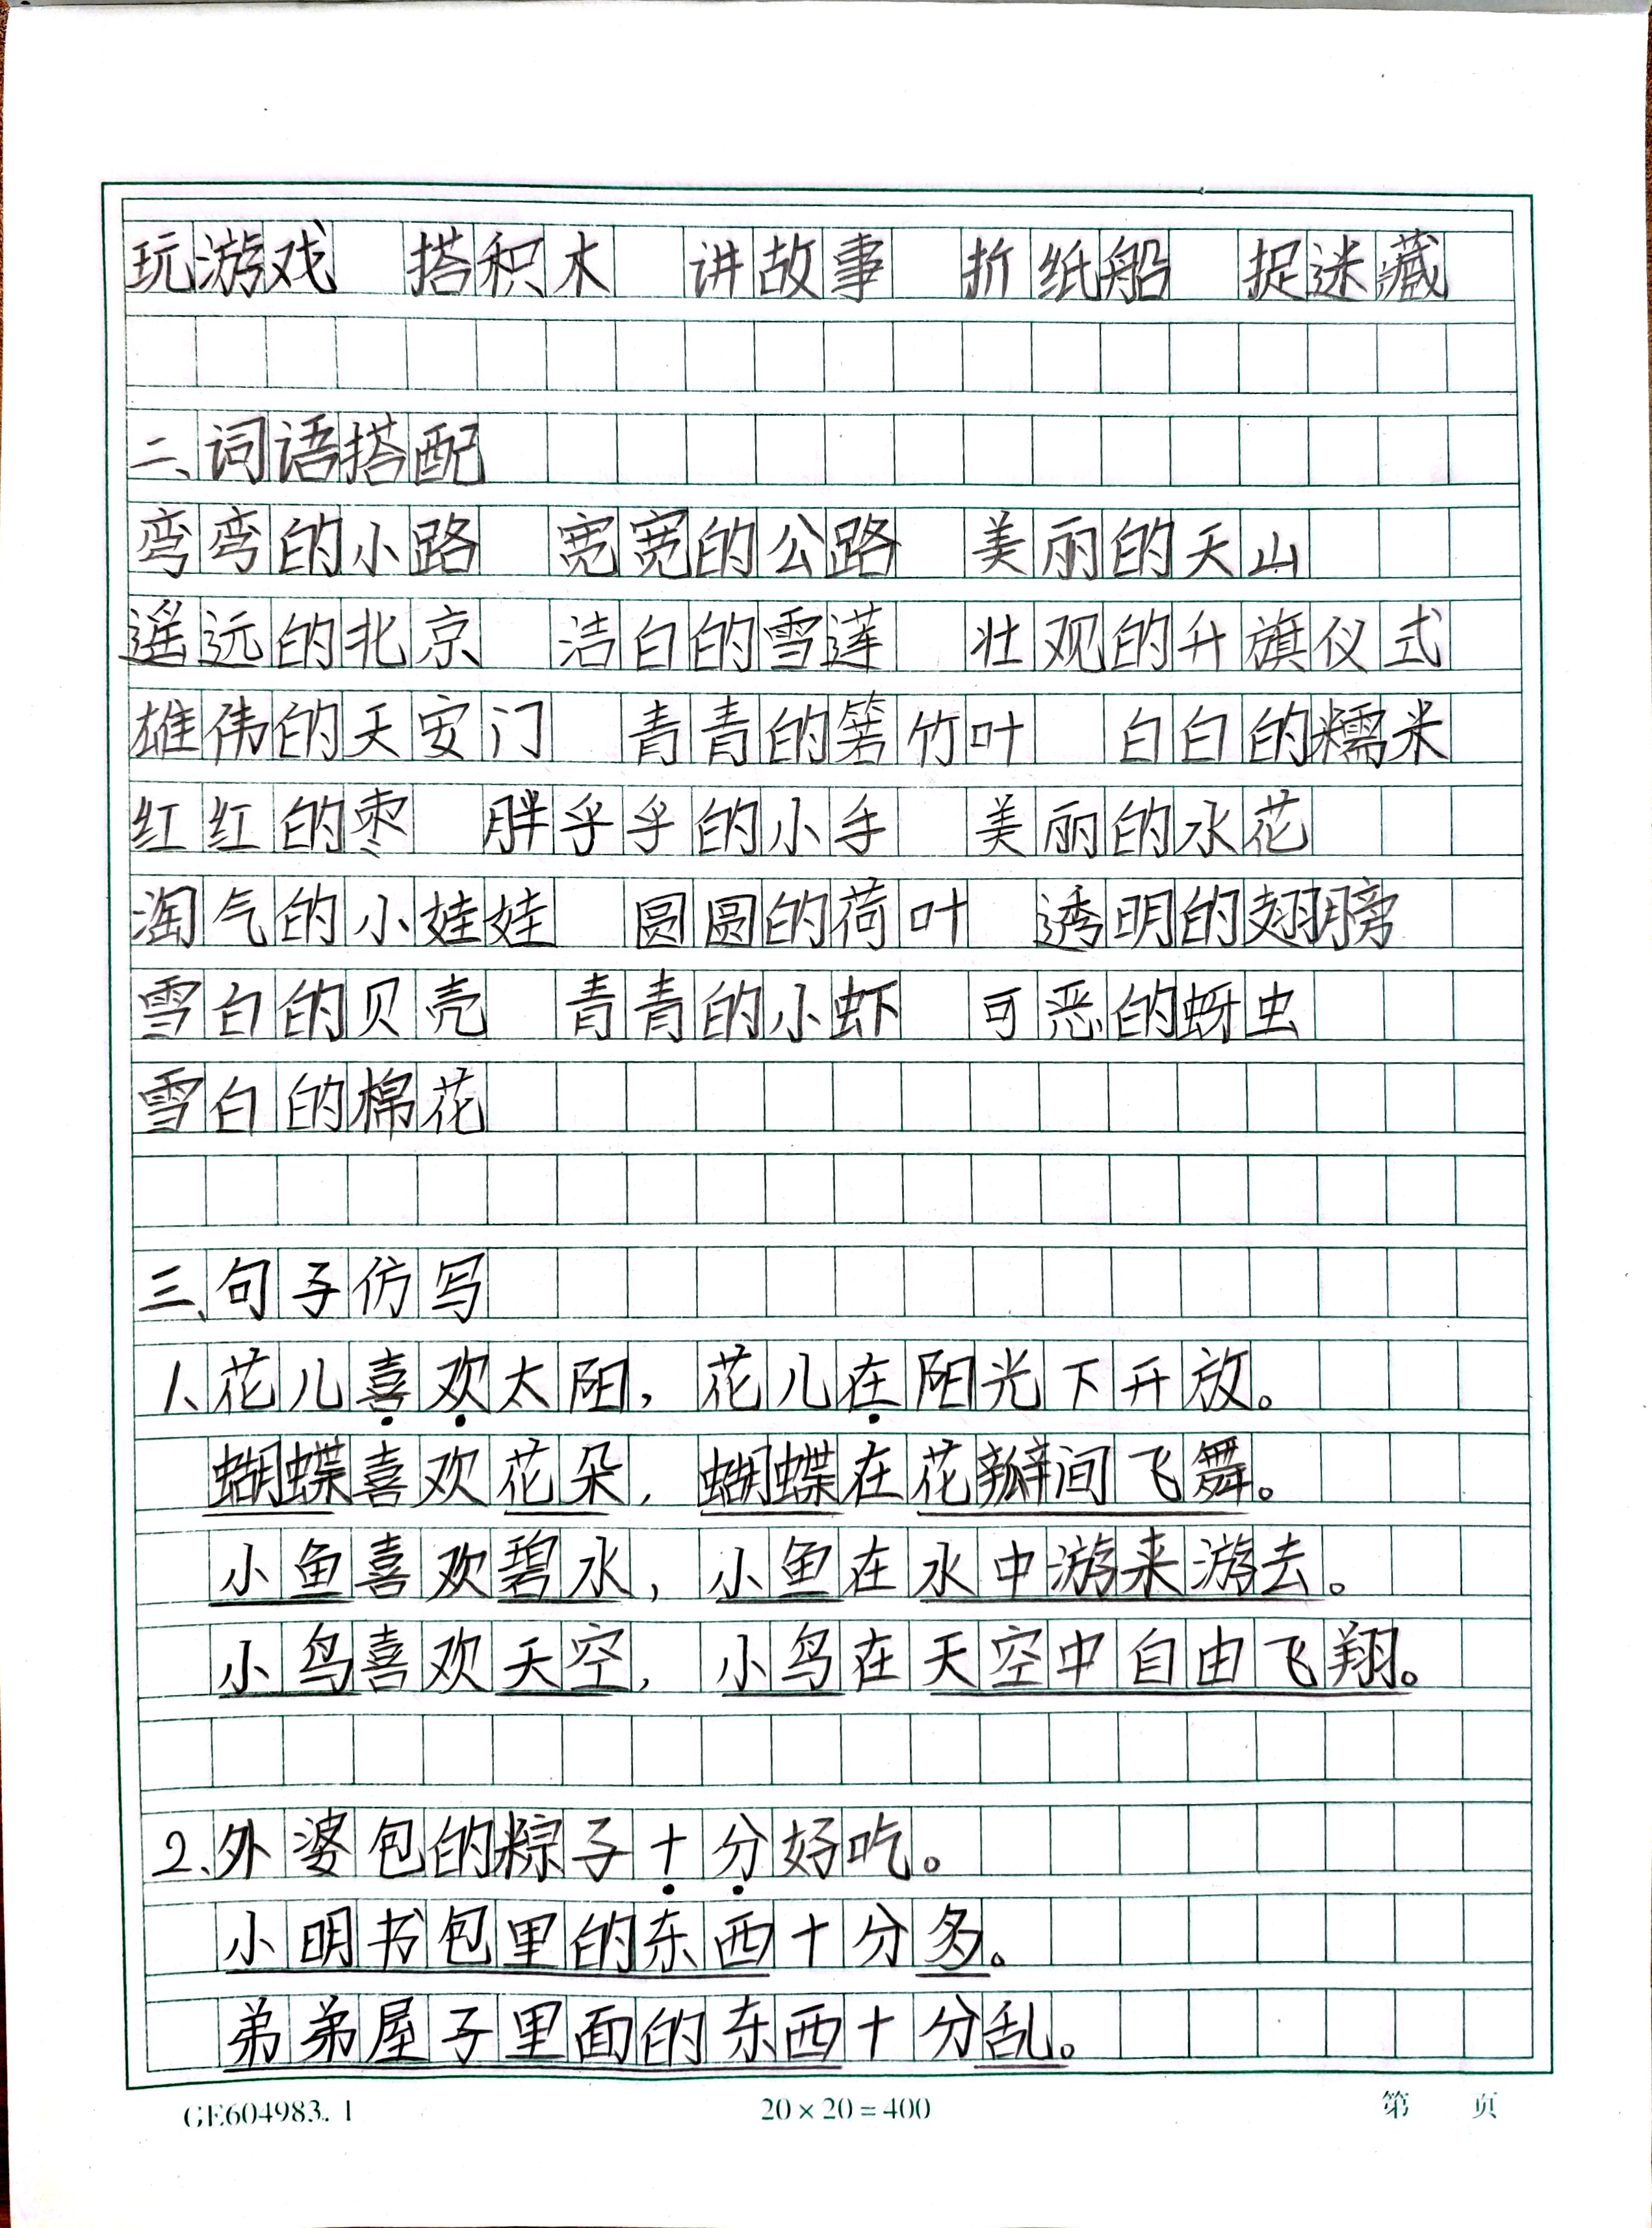 玩游戏 搭积木 讲故事 折纸船 捉迷藏
二、词语搭配
弯弯的小路 宽宽的公路 美丽的天山
遥远的北京 洁白的雪莲 壮观的升旗仪式
雄伟的天安门 青青的箬竹叶 白白的糯米
红红的枣 胖乎乎的小手 美丽的水花
淘气的小娃娃 圆圆的荷叶 透明的翅膀
雪白的贝壳 青青的小虾 可恶的蚜虫
雪白的棉花
三、句子仿写
1、花儿喜欢太阳，花儿在阳光下开放。
蝴蝶喜欢花朵，蝴蝶在花瓣间飞舞。
小鱼喜欢碧水，小鱼在水中游来游去。
小鸟喜欢天空，小鸟在天空中自由飞翔。
2、外婆包的粽子十分好吃。
小明书包里的东西十分多。
弟弟屋子里面的东西十分乱。
GE604983.1 20×20=400 第 页